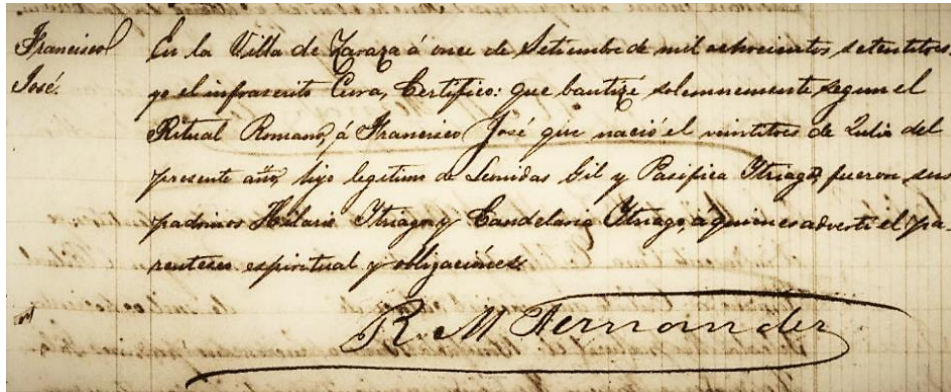 Francisco José.
En la Villa de Zaraza á once de Setiembre de mil ochocientos setentitres,
yo el infrascrito Cura, Certifico: que bautizé solemnemente segun el
Ritual Romano, á Francisco José que nació el veintitres de Julio del
presente año, hijo legitimo de Leonidas Gil y Pacifica Ytriago, fueron sus
padrinos Hilario Ytriago y Candelaria Ytriago, a quienes advertí el pa-
rentesco espiritual y obligaciones
R. M. Fernandez